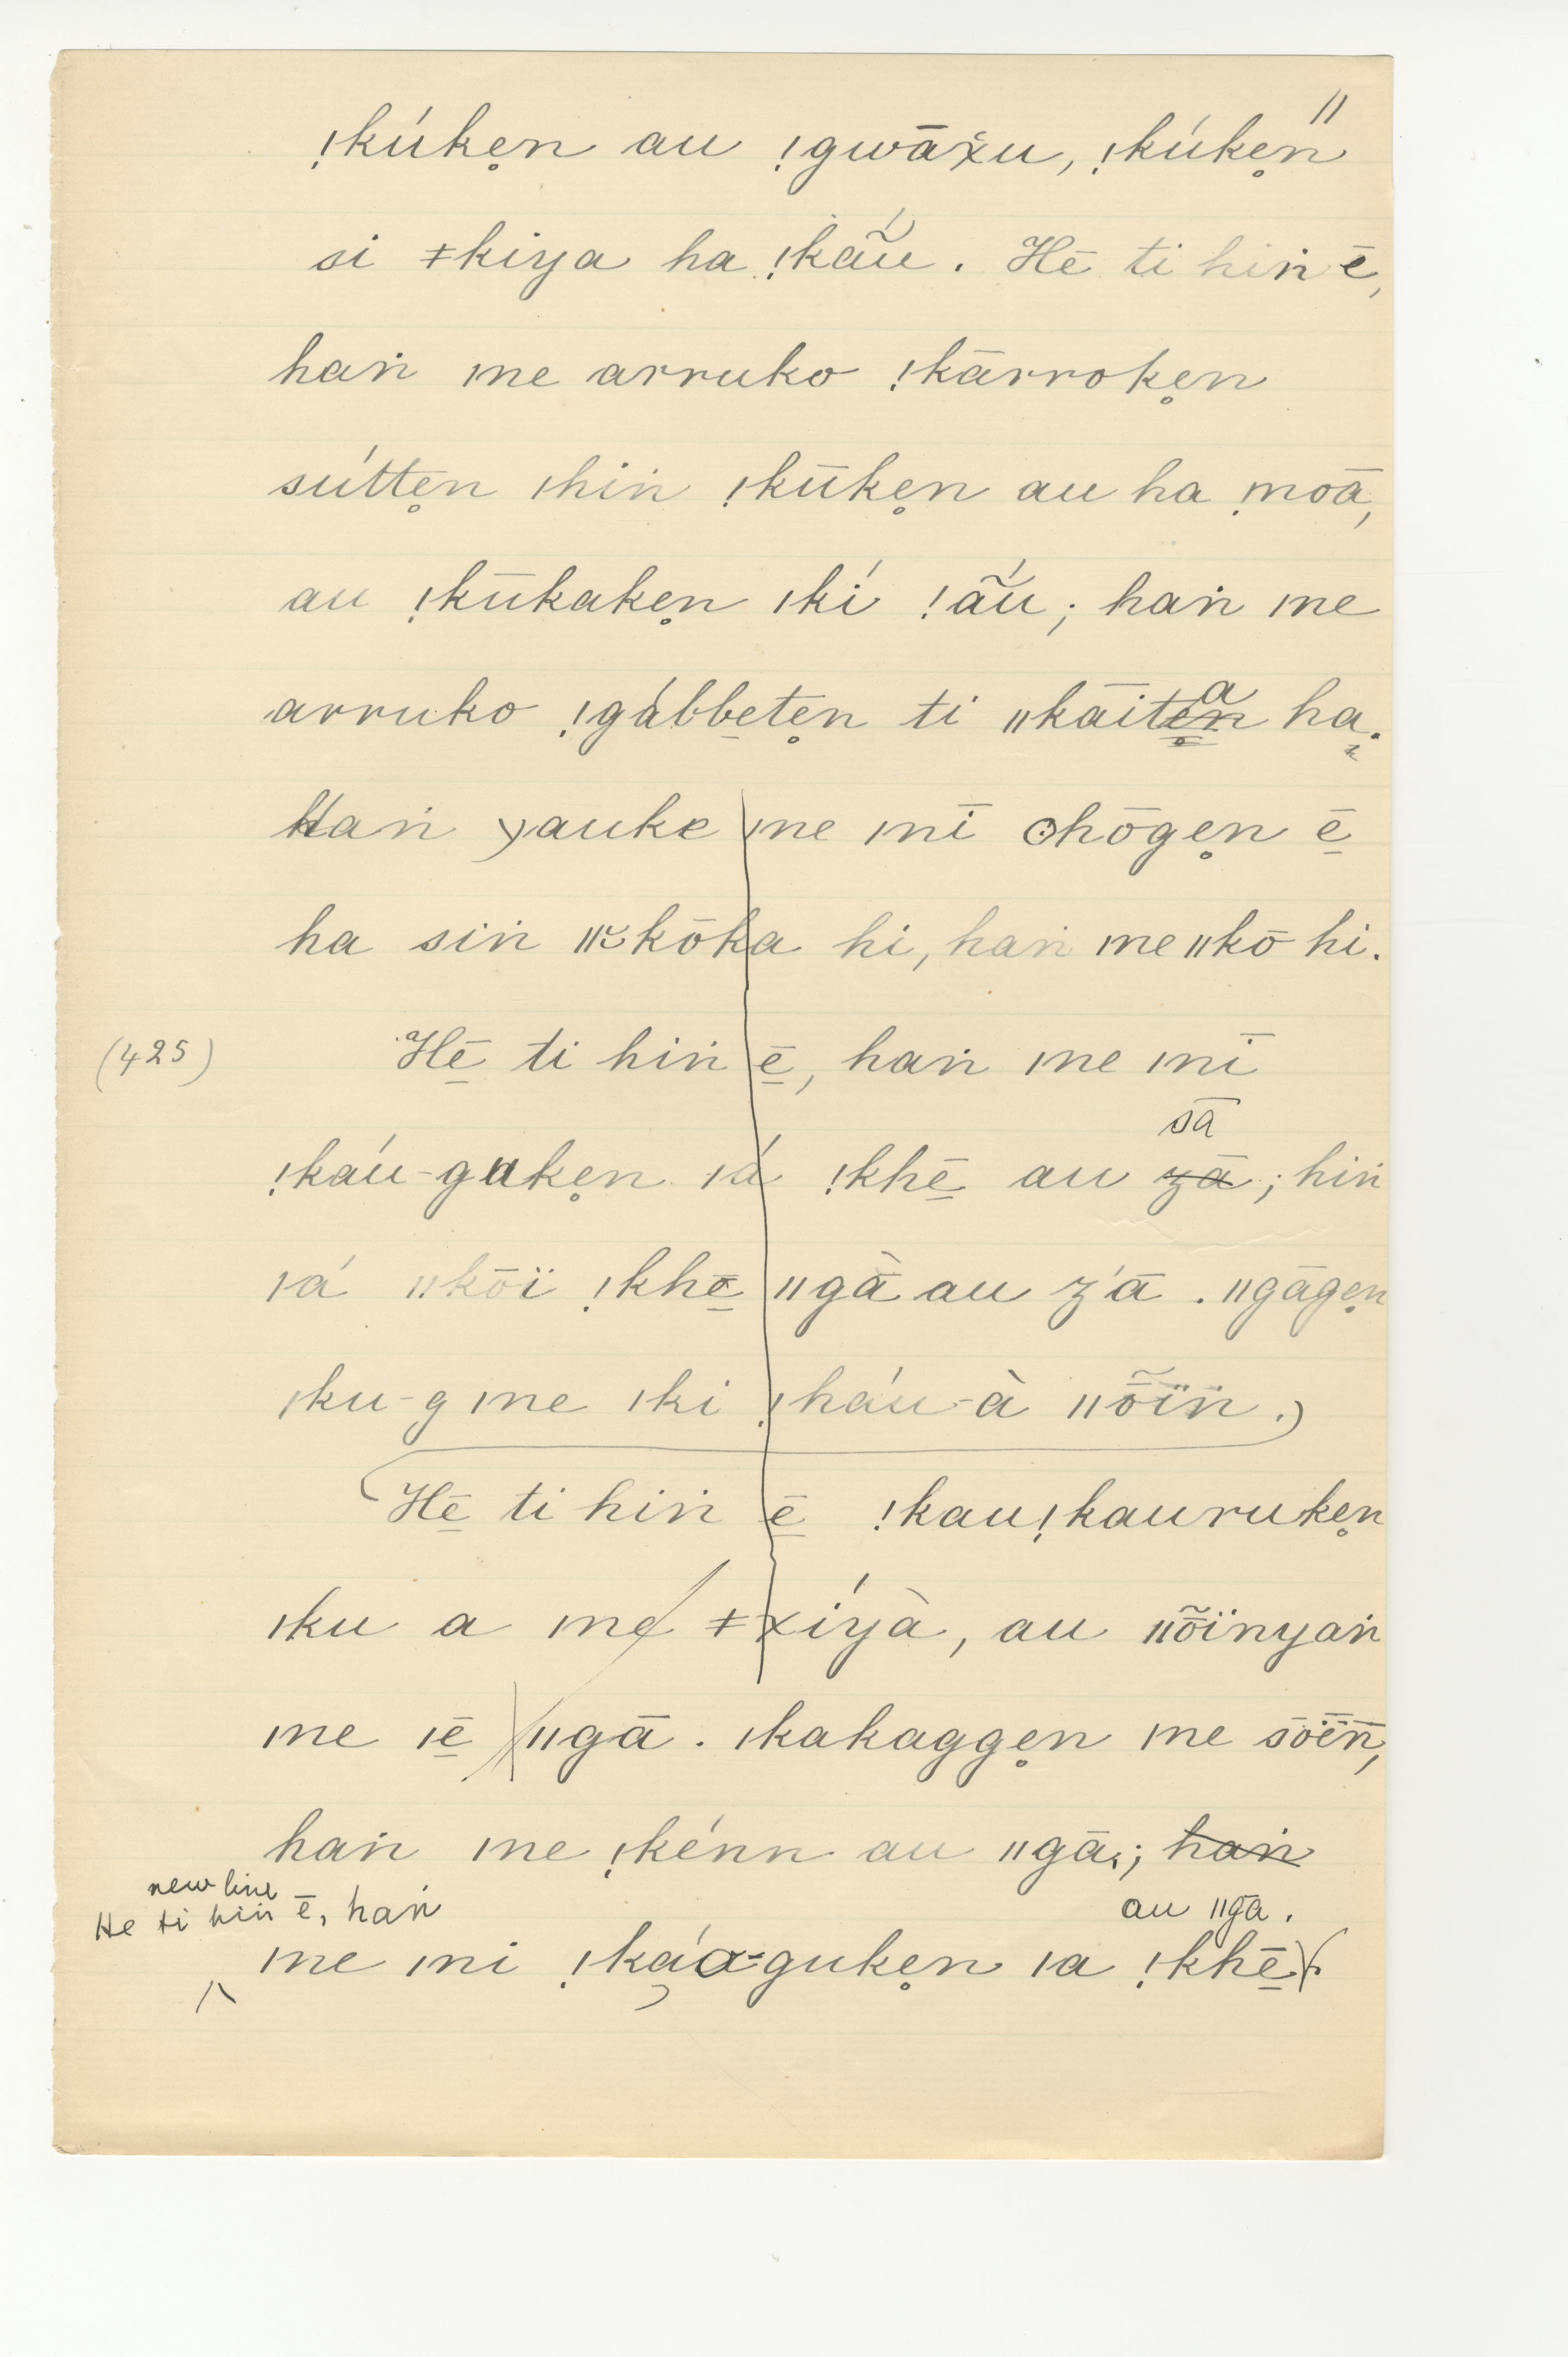 11
!kúkẹn au !gwāx̌u, !kúkẹn
si ǂkiya ha !kā̃́u. Hē ti hiṅ ē,
haṅ ǀne arruko !kārrokẹn
súttẹn ǀhiṅ !kūkẹn au ha ṃoā,
au !kūkakẹn ǀkí !ā̃́u; haṅ ǀne
arruko !gábbe̱tẹn ti ǁkāita ha.
Haṅ yauke ǀne ǀnī ʘhōgẹn ē̱
ha siṅ ǁkōka hi, haṅ ǀne ǁkō hi.
(425) Hē̱ ti hiṅ ē̱, haṅ ǀne ǀnī
sā
!káu-gukẹn ǀá !khē̱ au z̶ā̶; hiṅ
ǀá ǁkōï !khē̱ ǁgā̀ au z'ā. ǁgāgẹn
ǀku-g ǀne ǀki !háu-à ǁȭïṅ.)
(Hē̱ ti hiṅ ē̱ !kau!kaurukẹn
ǀku a ǀne ǂxíyà, au ǁȭïnyaṅ
ǀne ǀē̱ ǁgā. ǀkakaggẹn ǀne s̄ōë̄n̄,
haṅ ǀne !kénn au ǁgā,; h̶a̶ṅ̶
new line
He ti hiṅ ē, haṅ au ǁgā.
ǀne ǀni !káa-gukẹn ǀa !khē̱